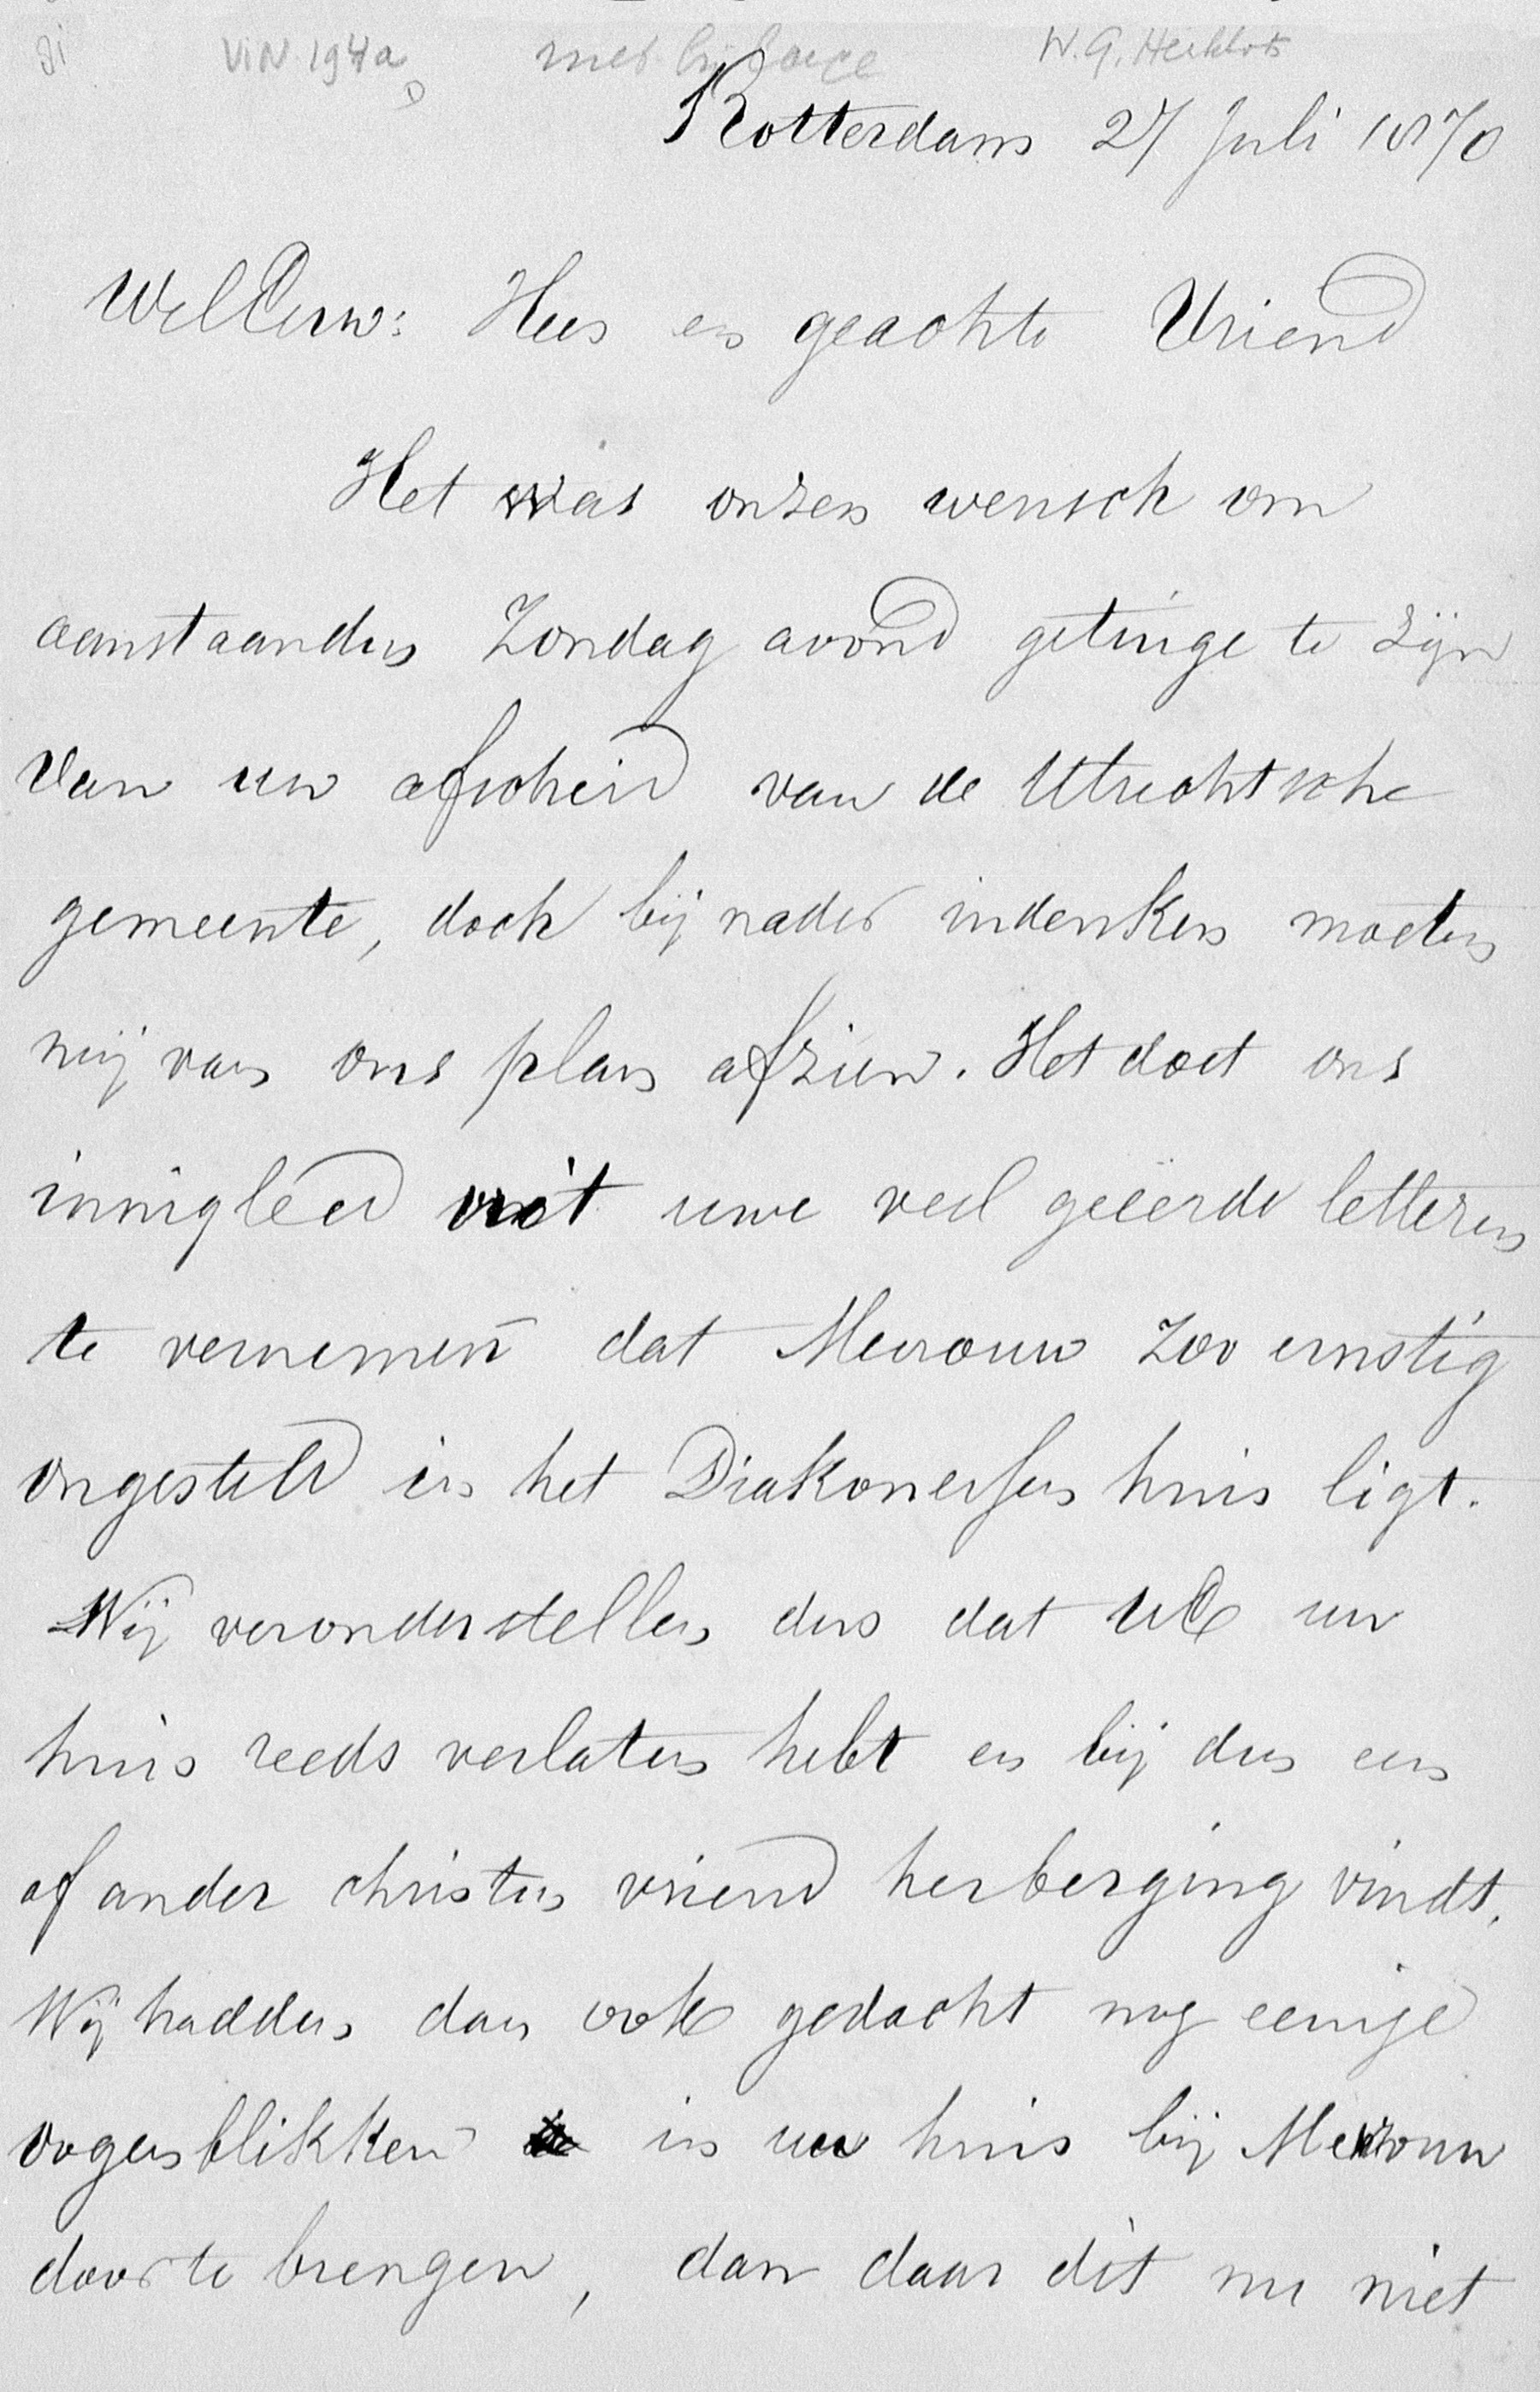 ViN 194a met bijlage W.G. Herklots
Rotterdam 27 Juli 1870
WelEerw: Heer en geachte Vriend
Het was onzen wensch om
aanstaanden Zondag avond getuige te zijn
van uw afscheid van de Utrechtsche
gemeente, doch bij nader indenken moeten
wij van ons plan afzien. Het doet ons
innig leed uit uwe veel geëerde letteren
te vernemen dat Mevrouw zoo ernstig
ongesteld in het Diakonessen huis ligt.
Wij veronderstellen dus dat UE uw
huis reeds verlaten hebt en bij den een
of ander christen vriend herberging vindt.
Wij hadden dan ook gedacht nog eenige
oogenblikken in uw huis bij Mevrouw
door te brengen, dan daar dit nu niet